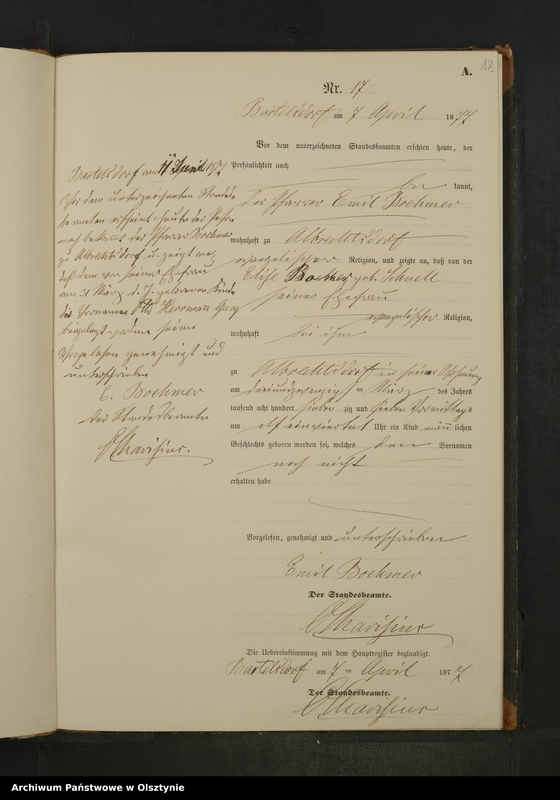 A.
18
Nr. 17
Bartelsdorf am 7 April 1877
Vor dem unterzeichneten Standesbeamten erschien heute, der
Persönlichkeit nach
be kannt,
der Pfarrer Emil Boehmer
wohnhaft zu Albrechtsdorf
evangelischer Religion, und zeigte an, daß von der
Elise Boehmer geb. Schnell
seiner Ehefrau
evangelischer Religion,
wohnhaft bei ihm
zu Albrechtsdorf in seiner Wohnung
am März des Jahres
tausend acht hundert sieben zig und sieben Vormittags
um elf einviertel Uhr ein Kind männ lichen
Geschlechts geboren worden sei, welches den Vornamen
noch nicht
erhalten habe
Vorgelesen, genehmigt und unterschrieben
Emil Boehmer
Der Standesbeamte.
Die Uebereinstimmung mit dem Hauptregister beglaubigt.
Bartelsdorf am 7 ten April 1877
Der Standesbeamte.
Bartelsdorf am 11 Juni 1877
Vor dem unterzeichneten Standes
beamten erscheint heute der Person
nach bekannt der Pfarrer Boehmer
zu Albrechtsdorf u. zeigt an,
daß dem von seiner Ehefrau
am März d. J. geborenen Kinde
die Vornamen Otto Herrmann Georg
beigelegt worden seien
Vorgelesen genehmigt und
unterschrieben
E. Boehmer
Der Standesbeamte
Archiwum Państwowe w Olsztynie